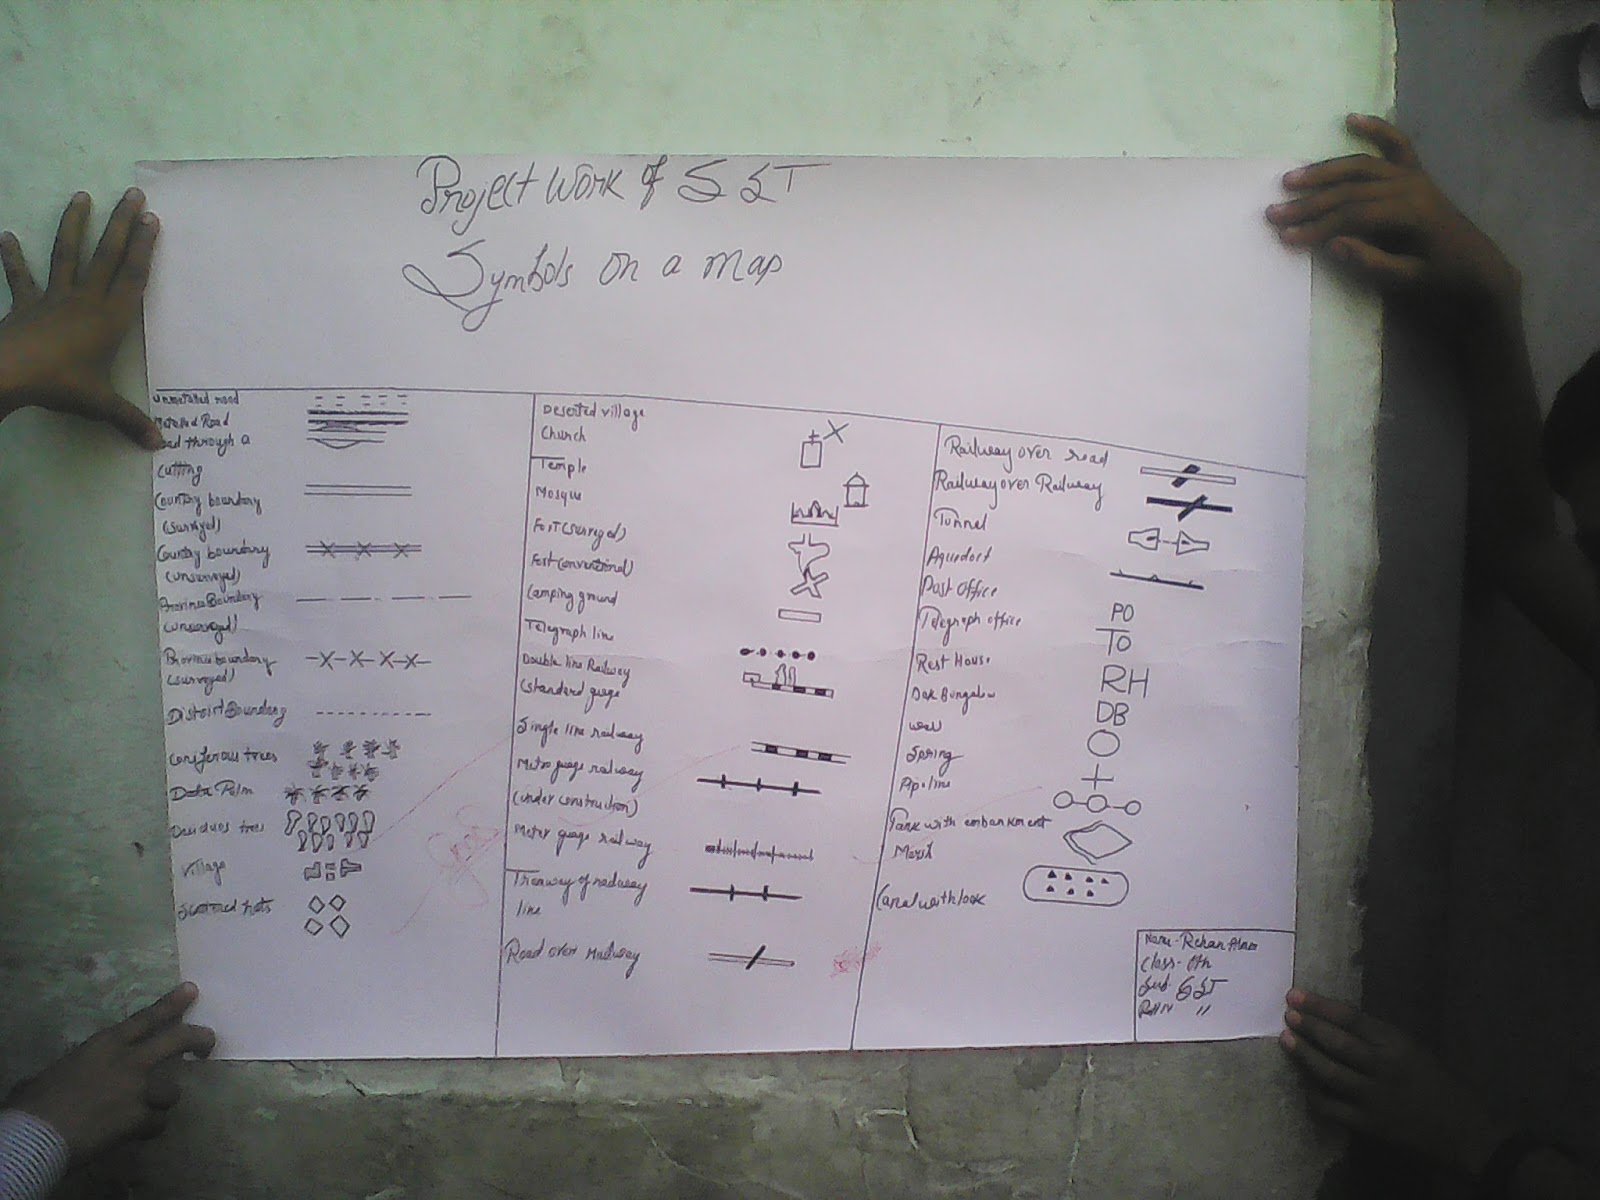 Project Work of SST
Symbols on a map
Unmetalled road
Metalled Road
Road through a
Cutting
Country boundary
(surveyed)
Country boundary
(unsurveyed)
Province Boundary
(unsurveyed)
Province boundary
(surveyed)
District Boundary
Coniferou trees
Data Palm
Village
Scattered huts
Deserted village
Church
Temple
Mosque
Fort (surveyed)
Fort (conventional)
Camping ground
Telegraph line
Double line Railway
(standard guage
Single line railway
Metro guage railway
(under construction)
Meter guage railway
line
Road over railway
Railway over road
Railway over Railway
Tunnel
Post Office
PO
Telegraph office
TO
Rest House
RH
Dak Bungalow
DB
Spring
Pipeline
Tank with embankment
Canal with lock
Name - Rehan
Class - 
Sub. SST